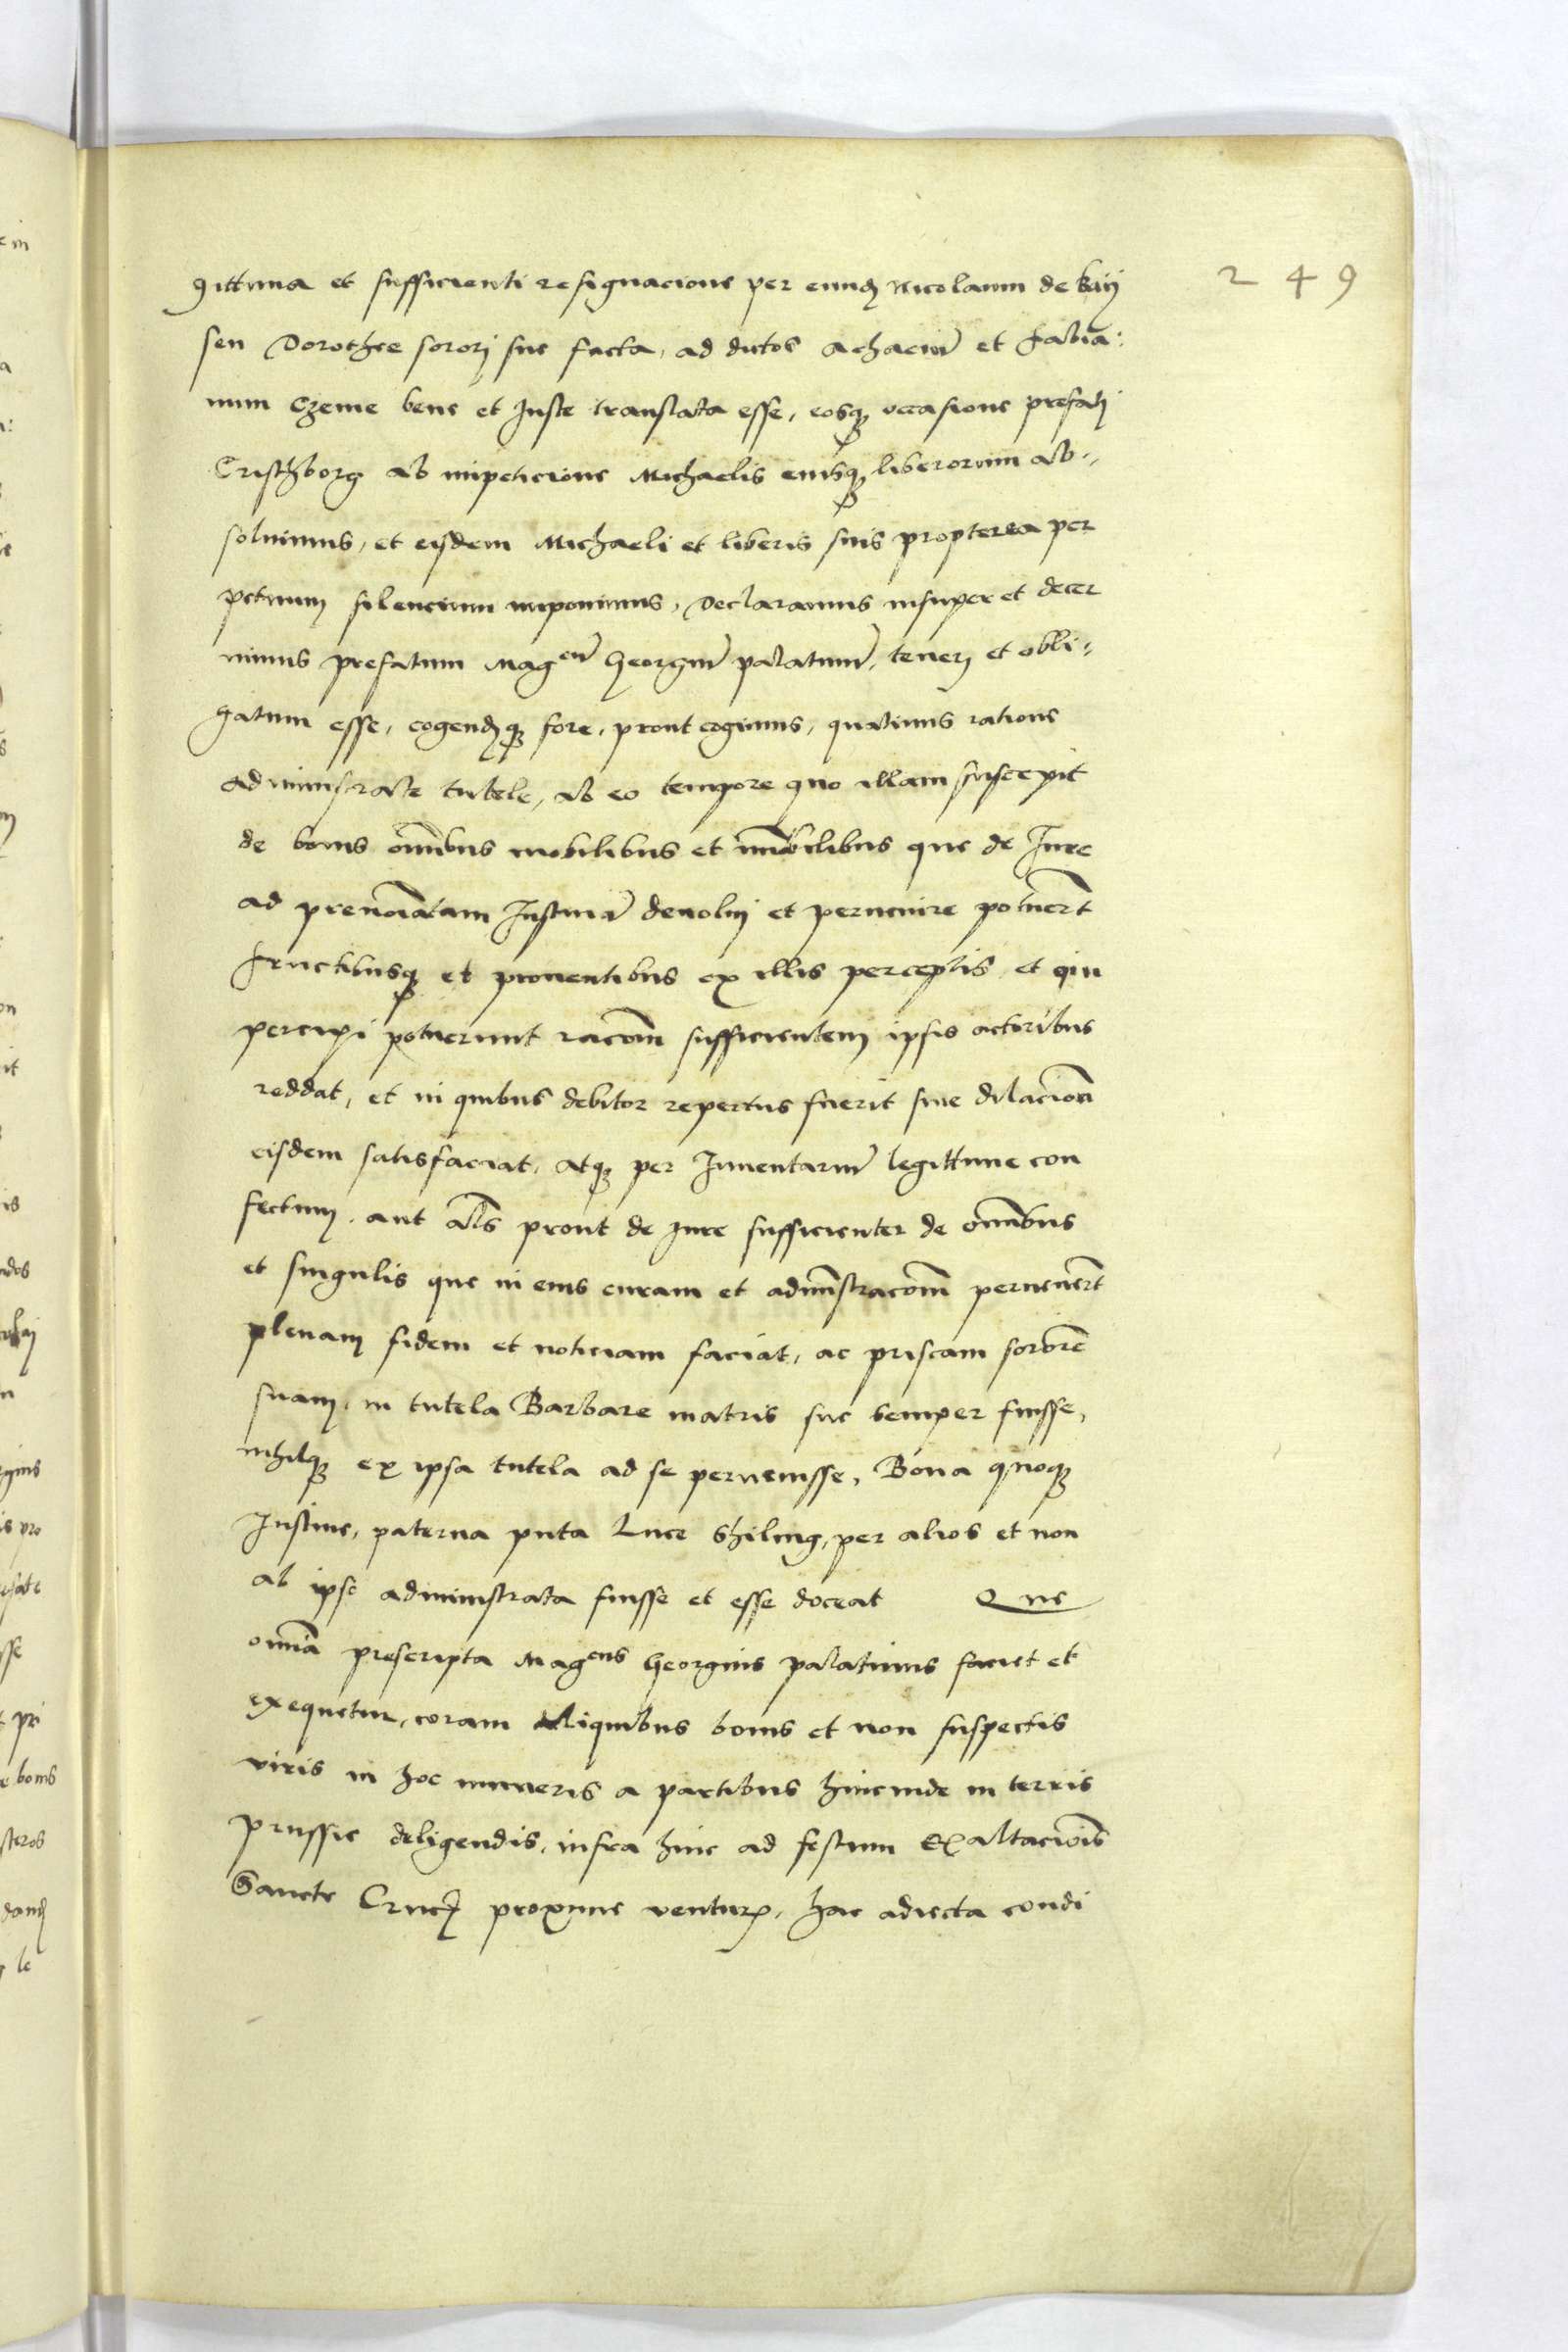 249
gittima et sufficienti resignacione per eund Nicolaum de Baÿ
sen Dorothee sororj sue facta, ad dictos Achaciũ et Fabia:
num Czeme bene et Iuste translata esse, eosq occasione prefatj
Cristhborg ab impeticione Michaelis eiusq liberorum ab„
soluimus, et eisdem Michaeli et liberis suis propterea per
petuum silencium imponimus, Declaramus insuper et decer
nimus prefatum Magcũ Georgiũ palatinũ, tenerj et obli:
gatum esse, cogendqʒ fore, prout cogimus, quatinus ratione
administrate tutele, ab eo tempore quo illam suscepit
de bonis om̃ibus mobilibus et im̃obilibus que de Iure
ad prenoĩatam Iustinã deuoluj et peruenire potuert̃
fructibusqʒ et prouentibus ex illis perceptis et qui
percipi potuerunt racom̃ sufficientem ipsis actoribus
reddat, et in quibus debitor repertus fuerit sine dilacioñ
eisdem satisfaciat, atqʒ per Inuentariũ legittime con
fectum, aut als̃ prout de Iure sufficienter de om̃ibus
et singulis que in eius curam et adm̃istracom̃ peruenert̃
plenam fidem et noticiam faciat, ac priscam sororẽ
suam, in tutela Barbare matris sue semper fuisse,
nihilqʒ ex ipsa tutela ad se peruenisse, Bona quoqʒ
Iustine, paterna puta Luce Shiling, per alios et non
ab ipso administrata fuisse et esse doceat Que
omĩa prescripta Magcus Georgius palatinus faciet et
exequetur, coram aliquibus bonis et non suspectis
viris in hoc muneris a partibus hincinde in terris
Prussie deligendis, infra hinc ad festum Exaltacioĩs
Sancte Crucj proxime ventur, hac adiecta condi